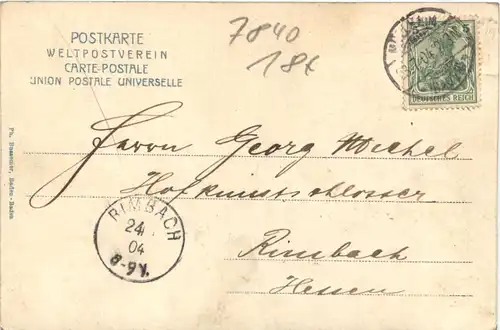 7840
18x
POSTKARTE
WELTPOSTVEREIN
CARTE-POSTALE
UNION POSTALE UNIVERSELLE
5
DEUTSCHES REICH
Herrn Georg Michel
Hofkunstschlosser
Rimbach
Hessen
RIMBACH
24
04
8-9V.
Ph. Bussemer, Baden-Baden